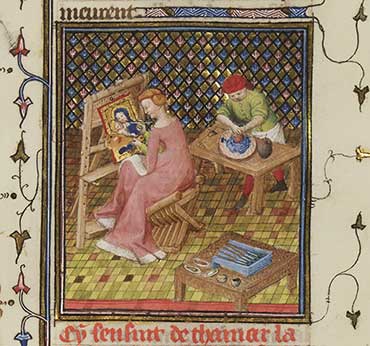 meurent
Cy sensuit de thamar la